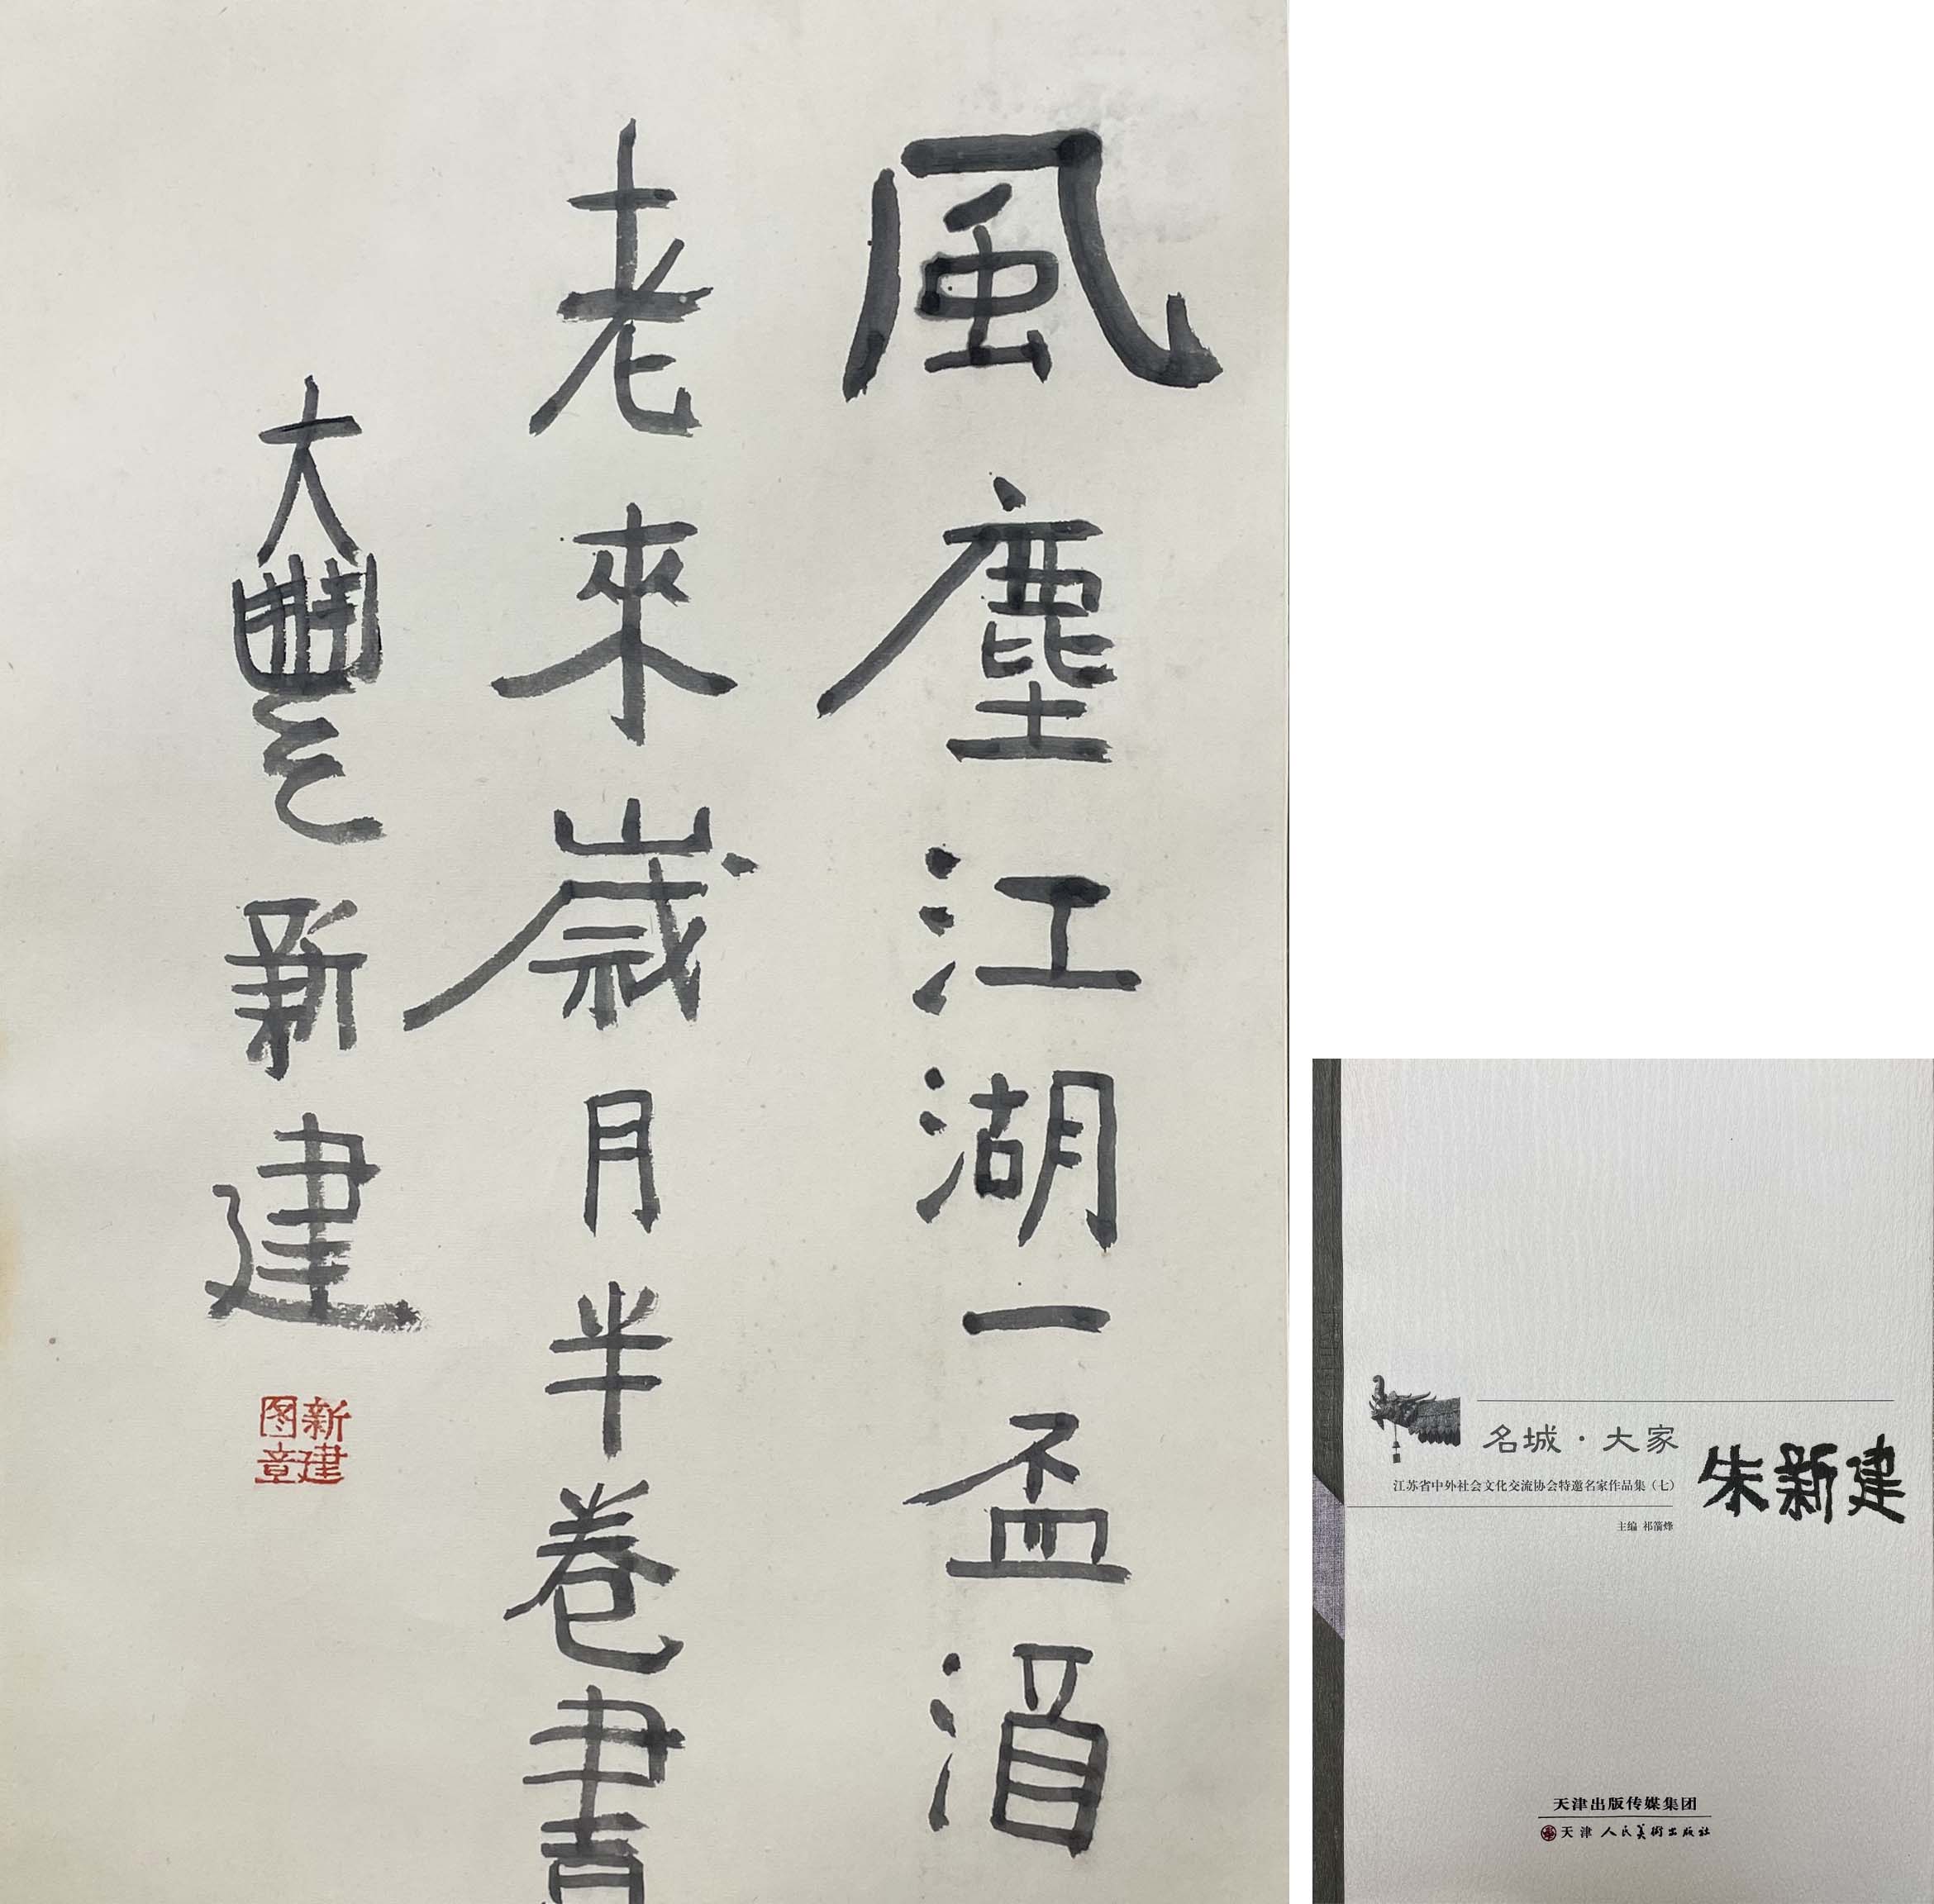 風塵江湖一盃酒
老來歲月半卷書
大豐 新建
新建
图章
名城·大家
朱新建
江苏省中外社会文化交流协会特邀名家作品集（七）
主编 祁箭烽
天津出版传媒集团
天津人民美術出版社